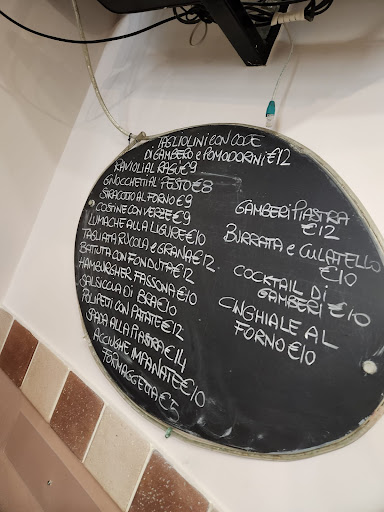 TAGLIOLINI CON CODE
DI GAMBERO e POMODORINI €12
RAVIOLI AL RAGÙ €9
GNOCCHETTI AL PESTO €8
STRACOTTO AL FORNO €9
COSTINE CON VERZE €9
LUMACHE ALLA LIGURE €10
TAGLIATA RUCOLA e GRANA €12
BATTUTA CON FONDUTA €12
HAMBURGHER FASSONA €10
SALSICCIA DI BRA €10
POLIPETTI CON PATATE €12
SPADA ALLA PIASTRA €14
ACCIUGHE IMPANATE €10
FORMAGGETTA €5
GAMBERI PIASTRA
€12
BURRATA e CULATELLO
€10
COCKTAIL DI
GAMBERI €10
CINGHIALE AL
FORNO €10